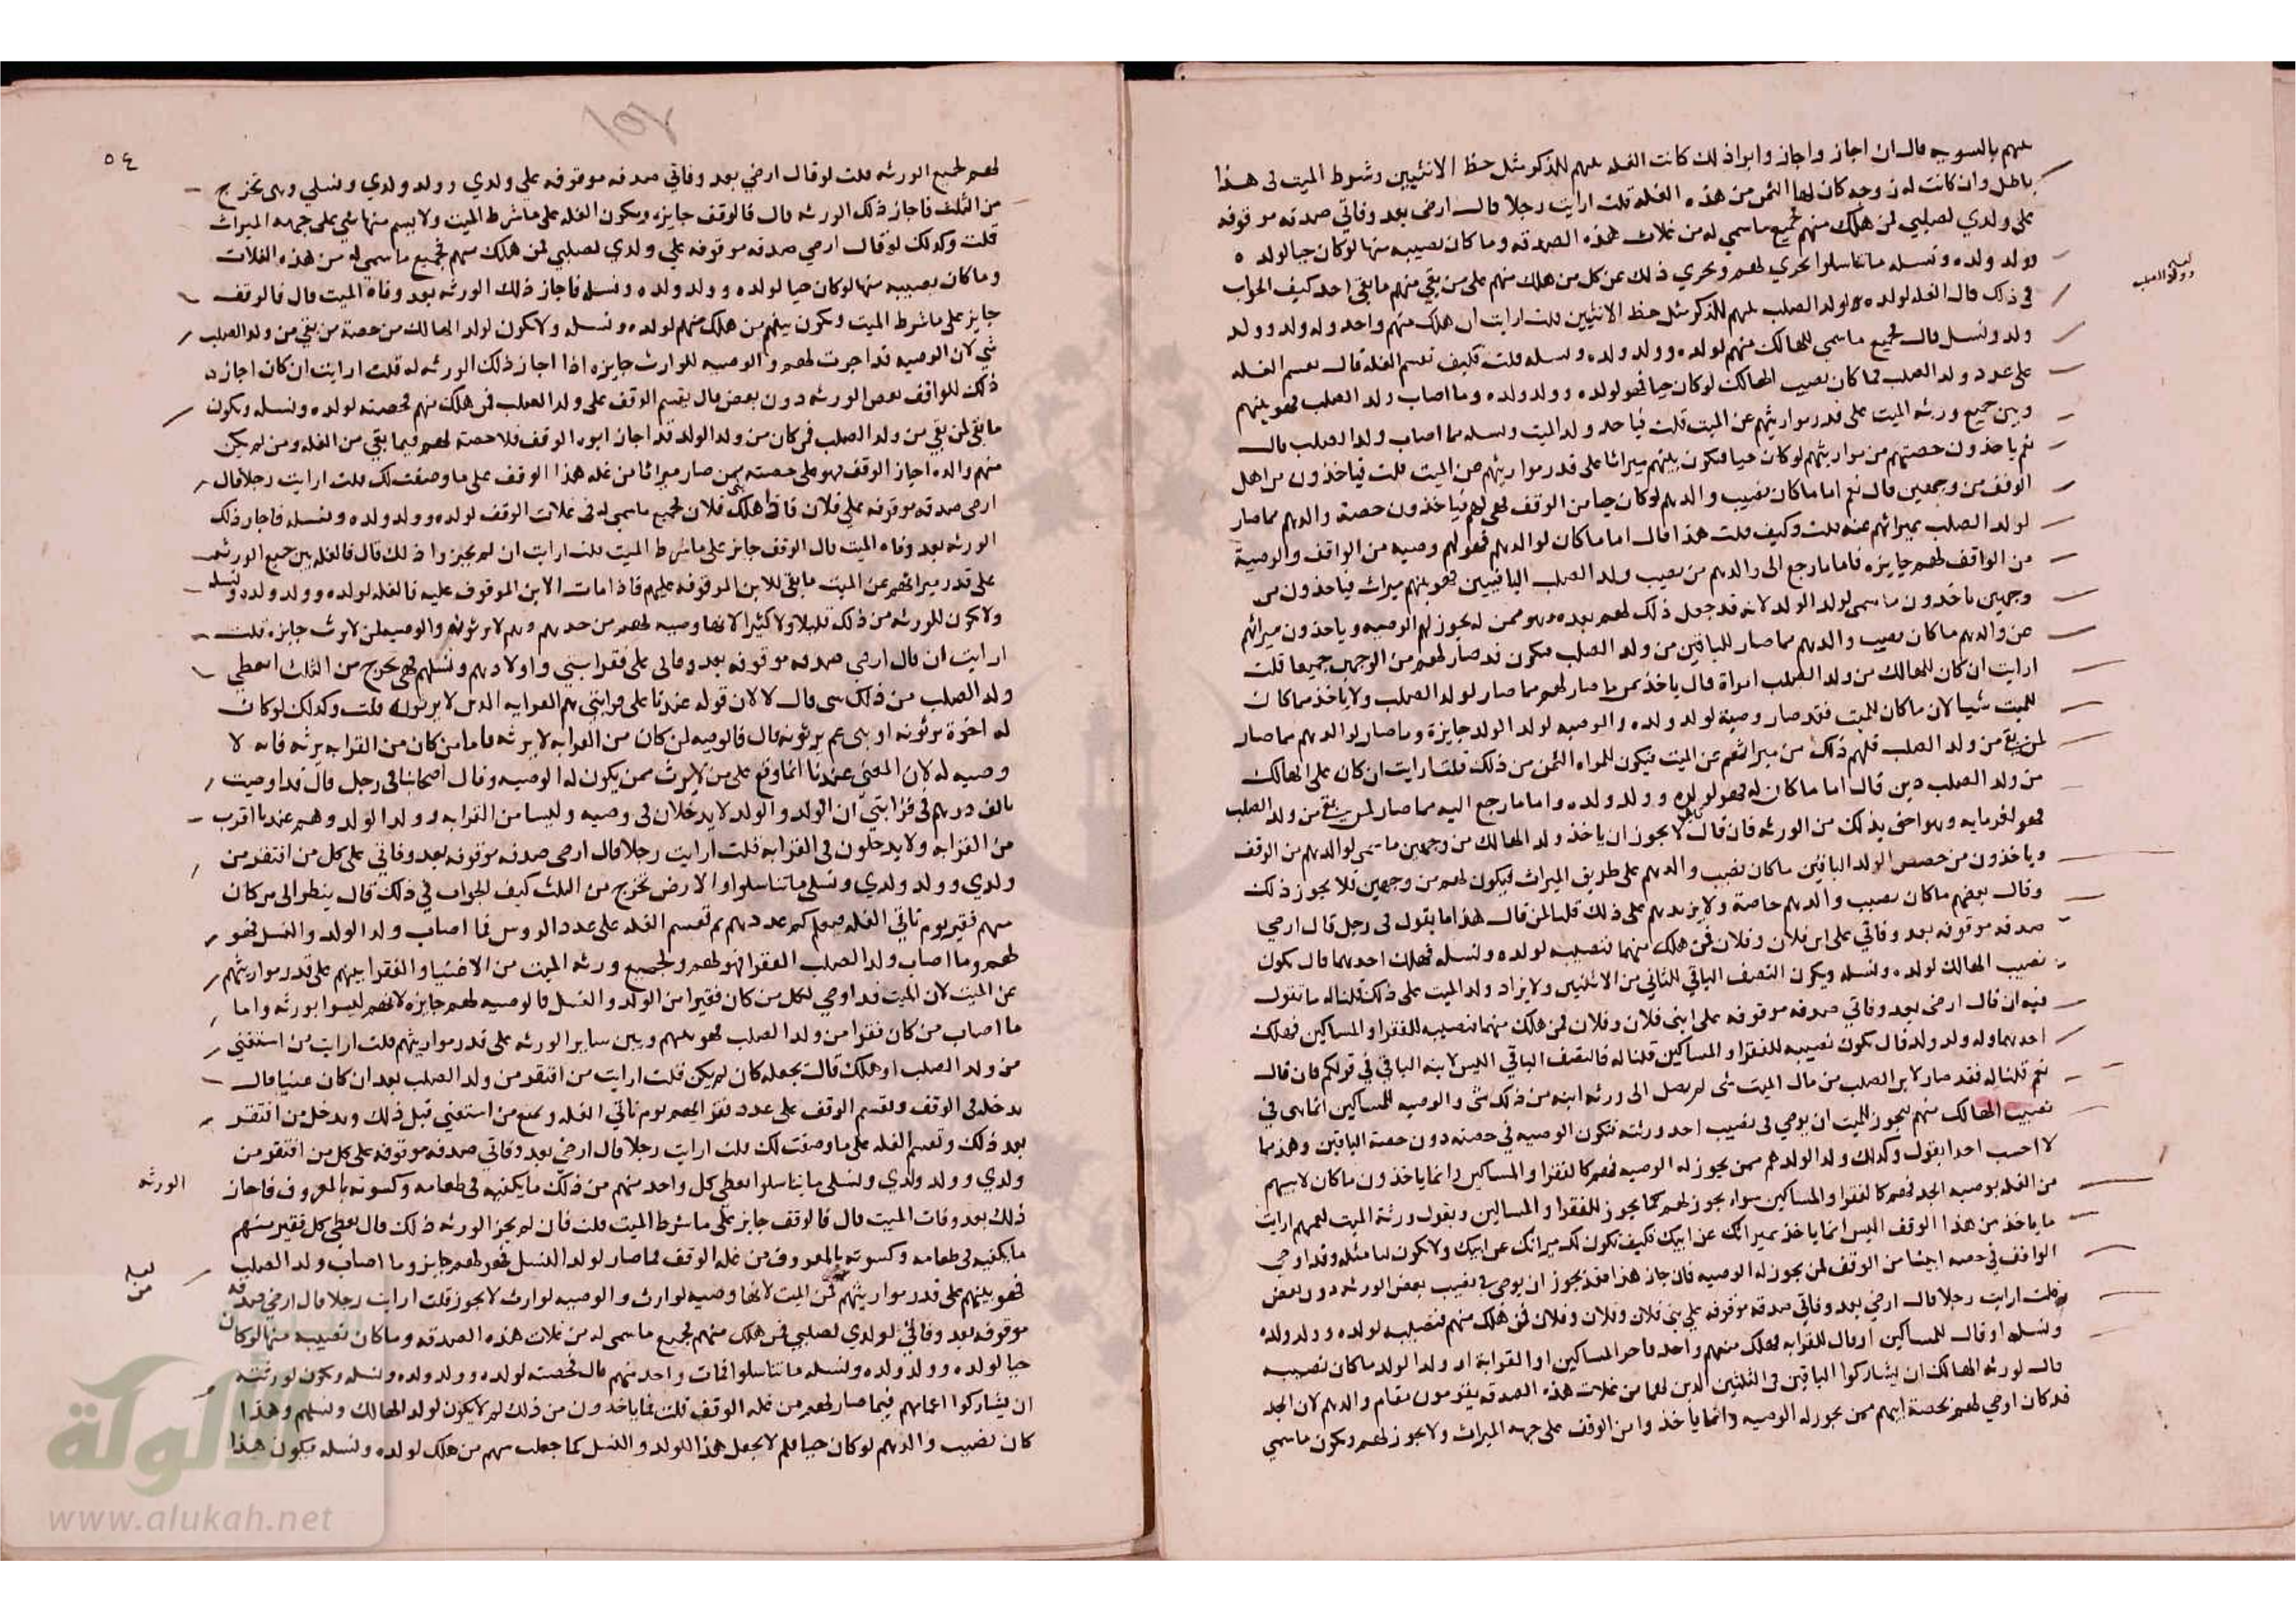 بينهم بالسويه قال ان اجاز واجاز وابوا ذلك كانت الغله بينهم للذكر مثل حظ الانثيين وشرط الميت في هذا
باطل وان كانت له زوجه كان لها الثمن من هذه الغله قلت ارايت رجلا قال ارضي بعد وفاتي صدقه موقوفه
على ولدي لصلبي فمن هلك منهم فجميع ما سمي له من غلات هذه الصدقه وما كان نصيبه منها لو كان حيا لولده
وولد ولده ونسله ما تناسلوا يجري لهم ويجري ذلك عن كل من هلك منهم على من بقي منهم ما بقي احد كيف الجواب
في ذلك قال الغله لولده ولولد الصلب بينهم للذكر مثل حظ الانثيين قلت ارايت ان هلك منهم واحد وله ولد وولد
ولد ونسل قال فجميع ما سمي للهالك منهم لولده وولد ولده ونسله قلت فكيف تقسم الغله قال تقسم الغله
على عدد ولد الصلب فما كان نصيب الهالك لو كان حيا فهو لولده وولد ولده وما اصاب ولد الصلب فهو بينهم
وبين جميع ورثه الميت على قدر مواريثهم عن الميت قلت فياخذ ولد الميت ونسله مما اصاب ولد الصلب قال
نعم ياخذون حصتهم من مواريثهم لو كان حيا فيكون بينهم ميراثا على قدر مواريثهم عن الميت قلت فياخذون من اهل
الوقف من وجهين قال نعم اما ما كان نصيب والدهم لو كان حيا من الوقف فهي لهم فياخذون حصة والدهم مما صار
لولد الصلب بميراثهم عنه قلت وكيف قلت هذا قال اما ما كان لوالدهم فهو لهم وصيه من الواقف والوصية
من الواقف لهم جايزه فاما ما رجع الى والدهم من نصيب ولد الصلب الباقيين فهو بينهم ميراث فياخذون من
وجهين ياخذون ما سمى لولد الولد لانه قد جعل ذلك لهم بعده وهو ممن له يجوز لهم الوصيه وياخذون ميراثهم
عن والدهم ما كان نصيب والدهم مما صار للباقين من ولد الصلب فيكون قد صار لهم من الوجهين جميعا قلت
ارايت ان كان للهالك من ولد الصلب امراة قال ياخذ ممن ما صار لهم مما صار لولد الصلب ولا ياخذ مما كان
للميت شيا لان ما كان للميت فقد صار وصية لولد ولده والوصيه لولد الولد جايزة وما صار لوالدهم مما صار
لمن بقي من ولد الصلب فلهم ذلك من ميراثهم عن الميت فيكون للمراه الثمن من ذلك قلت ارايت ان كان على الهالك
من ولد الصلب دين قال اما ما كان له فهو لولده وولد ولده واما ما رجع اليه مما صار لمن بقي من ولد الصلب
فهو لغرمايه وهو احق بذلك من الورثه فان قال قايل لا يجوز ان ياخذ ولد الهالك من وجهين ما سمي لوالدهم من الوقف
وياخذون من حصص الولد الباقين ما كان نصيب والدهم على طريق الميراث فيكون لهم من وجهين فلا يجوز ذلك
وقال بعضهم ما كان نصيب والدهم خاصة ولا يزيدهم على ذلك قلنا لمن قال هذا ما يقول في رجل قال ارضي
صدقه موقوفه بعد وفاتي على ابني فلان وفلان فمن هلك منهما فنصيبه لولده ونسله فهلك احدهما قال يكون
نصيب الهالك لولده ونسله ويكون النصف الباقي للثاني من الاثنين ولا يزاد ولد الميت على ذلك قلنا له ما تقول
فيه ان قال ارضي بعد وفاتي صدقه موقوفه على ابني فلان وفلان فمن هلك منهما فنصيبه للفقرا والمساكين فهلك
احدهما وله ولد ولد قال يكون نصيبه للفقرا والمساكين قلنا له فالنصف الباقي اليس لابنه الباقي في قولكم فان قال
نعم قلنا له فقد صار لابن الصلب من مال الميت شي لم يصل الى ورثه ابنه من ذلك شي والوصيه للمساكين انما هي في
نصيب الهالك منهم فيجوز للميت ان يوصي في نصيب احد ورثته فتكون الوصيه في حصته دون حصة الباقين وهذا ما
لا احسب احدا يقول وكذلك ولد الولد هم ممن يجوز له الوصيه فهم كالفقرا والمساكين وانما ياخذون ما كان لابيهم
من الغله بوصيه الجد فهم كالفقرا والمساكين سواء يجوز لهم كما يجوز للفقرا والمساكين ويقول ورثة الميت لعمهم ارايت
ما ياخذ من هذا الوقف اليس انما ياخذ بميراثك عن ابيك فكيف تكون لك ميراثك عن ابيك ولا يكون لنا مثله وقد اوصي
الواقف في حصه ابينا من الوقف لمن يجوز له الوصيه فان جاز هذا فقد يجوز ان يوصي في نصيب بعض الورثه دون بعض
قلت ارايت رجلا قال ارضي بعد وفاتي صدقه موقوفه على بني فلان وفلان وفلان فمن هلك منهم فنصيبه لولده وولد ولده
ونسله او قال للمساكين او قال للقرابه فهلك منهم واحد فاخر المساكين او القرابة او ولد الولد ما كان نصيبه
قال لورثه الهالك ان يشاركوا الباقين في الثلثين الذين لهما من غلات هذه الصدقه يقومون مقام والدهم لان الجد
قد كان اوصي لهم بحصة ابيهم ممن يجوز له الوصيه وانما ياخذ وابن الوقف على جهه الميراث ولا يجوز لهم ويكون ما سمي
وولد الصلب
٥٤
لهم لجميع الورثه قلت لو قال ارضي بعد وفاتي صدقه موقوفه على ولدي وولد ولدي ونسلي وهي تخرج
من الثلث فاجاز ذلك الورثه قال فالوقف جايزه ويكون الغله على ما شرط الميت ولا يقسم منها شي على جهه الميراث
قلت وكذلك لو قال ارضي صدقه موقوفه على ولدي لصلبي فمن هلك منهم فجميع ما سمي له من هذه الغلات
وما كان نصيبه منها لو كان حيا لولده وولد ولده ونسله فاجاز ذلك الورثه بعد وفاة الميت قال فالوقف
جايز على ما شرط الميت ويكون بينهم من هلك منهم لولده ونسله ولا يكون لولد الهالك من حصة من بقي من ولد الصلب
شي لان الوصيه قد اجرت لهم والوصيه للوارث جايزه اذا اجاز ذلك الورثه له قلت ارايت ان كان اجازه
ذلك للواقف بعض الورثه دون بعض قال يقسم الوقف على ولد الصلب فمن هلك منهم فحصته لولده ونسله ويكون
ما بقي لمن بقي من ولد الصلب فمن كان من ولد الولد قد اجاز ابوه الوقف فلا حصة لهم فيما بقي من الغله ومن لم يكن
منهم والده اجاز الوقف فهو على حصته ممن صار ميراثا من غله هذا الوقف على ما وصفت لك قلت ارايت رجلا قال
ارضي صدقه موقوفه على فلان فاذا هلك فلان فجميع ما سمي له في غلات الوقف لولده وولد ولده ونسله فاجاز ذلك
الورثه بعد وفاه الميت قال الوقف جايز على ما شرط الميت قلت ارايت ان لم يجيزوا ذلك قال فالغله بين جميع الورثه
على قدر ميراثهم عن الميت ما بقي للابن الموقوفه عليهم فاذا مات الابن الموقوف عليه فالغله لولده وولد ولده ونسله
ولا يكون للورثه من ذلك قليلا ولا كثيرا لانها وصيه لهم من جدهم وهم لا يرثونه والوصيه لمن لا يرث جايزه قلت
ارايت ان قال ارضي صدقه موقوفه بعد وفاتي على فقرا بني واولادهم ونسلهم فهي تخرج من الثلث ايعطي
ولد الصلب من ذلك شي قال لا لان قوله عندنا على قرابتي هم القرابه الذين لا يرثونه قلت وكذلك لو كان
له اخوة يرثونه او بني عم يرثونه قال فالوصيه لمن كان من القرابه لا يرثه فاما من كان من القرابه يرثه فانه لا
وصيه له لان المعني عندنا انما وقع على من لا يرث ممن يكون له الوصيه وقال اصحابنا في رجل قال قد اوصيت
بالف درهم في قرابتي ان الولد والوالد لا يدخلان في وصيه وليسا من القرابه وولد الولد وهم عندنا اقرب
من القرابه ولا يدخلون في القرابه قلت ارايت رجلا قال ارضي صدقه موقوفه بعد وفاتي على كل من افتقر من
ولدي وولد ولدي ونسلي ما تناسلوا والارض تخرج من الثلث كيف الجواب في ذلك قال ينظر الى من كان
منهم فقير يوم تاتي الغله فيعلم كم عددهم ثم تقسم الغله على عدد الروس فما اصاب ولد الولد والنسل فهو
لهم وما اصاب ولد الصلب الفقرا فهو لهم ولجميع ورثه الميت من الاغنيا والفقرا بينهم على قدر مواريثهم
عن الميت لان الميت قد اوصي لكل من كان فقيرا من الولد والنسل فالوصيه لهم جايزه لانهم ليسوا بورثه واما
ما اصاب من كان فقرا من ولد الصلب فهو بينهم وبين ساير الورثه على قدر مواريثهم قلت ارايت من استغني
من ولد الصلب او هلك قال يجعله كان لم يكن قلت ارايت من افتقر من ولد الصلب بعد ان كان غنيا قال
يدخله في الوقف ويقسم الوقف على عدد فقرايهم يوم تاتي الغله ويمنع من استغني قبل ذلك ويدخل من افتقر
بعد ذلك وتقسم الغله على ما وصفت لك قلت ارايت رجلا قال ارضي بعد وفاتي صدقه موقوفه على كل من افتقر من
ولدي وولد ولدي ونسلي ما تناسلوا يعطي كل واحد منهم من ذلك ما يكفيه في طعامه وكسوته بالمعروف فاجاز
الورثه
ذلك بعد وفات الميت قال فالوقف جايز على ما شرط الميت قلت فان لم يجز الورثه ذلك قال يعطي كل فقير منهم
ما يكفيه في طعامه وكسوته بالمعروف من غله الوقف فما صار لولد النسل فهو لهم جايز وما اصاب ولد الصلب
فهو بينهم على قدر مواريثهم من الميت لانها وصيه لوارث والوصيه لوارث لا يجوز قلت ارايت رجلا قال ارضي صدقه
موقوفه بعد وفاتي لولدي لصلبي فمن هلك منهم فجميع ما سمي له من غلات هذه الصدقه وما كان نصيبه منها لو كان
حيا لولده وولد ولده ونسله ما تناسلوا فمات واحد منهم قال فحصته لولده وولد ولده ونسله ويكون لورثته
ان يشاركوا اعمامهم فيما صار لهم من غله الوقف قلت فما ياخذون من ذلك لم لا يكون لولد الهالك ونسلهم وهذا
كان نصيب والدهم لو كان حيا فلم لا يجعل هذا للولد والنسل كما جعلت سهم من هلك لولده ونسله فيكون هذا
الألوكة
www.alukah.net